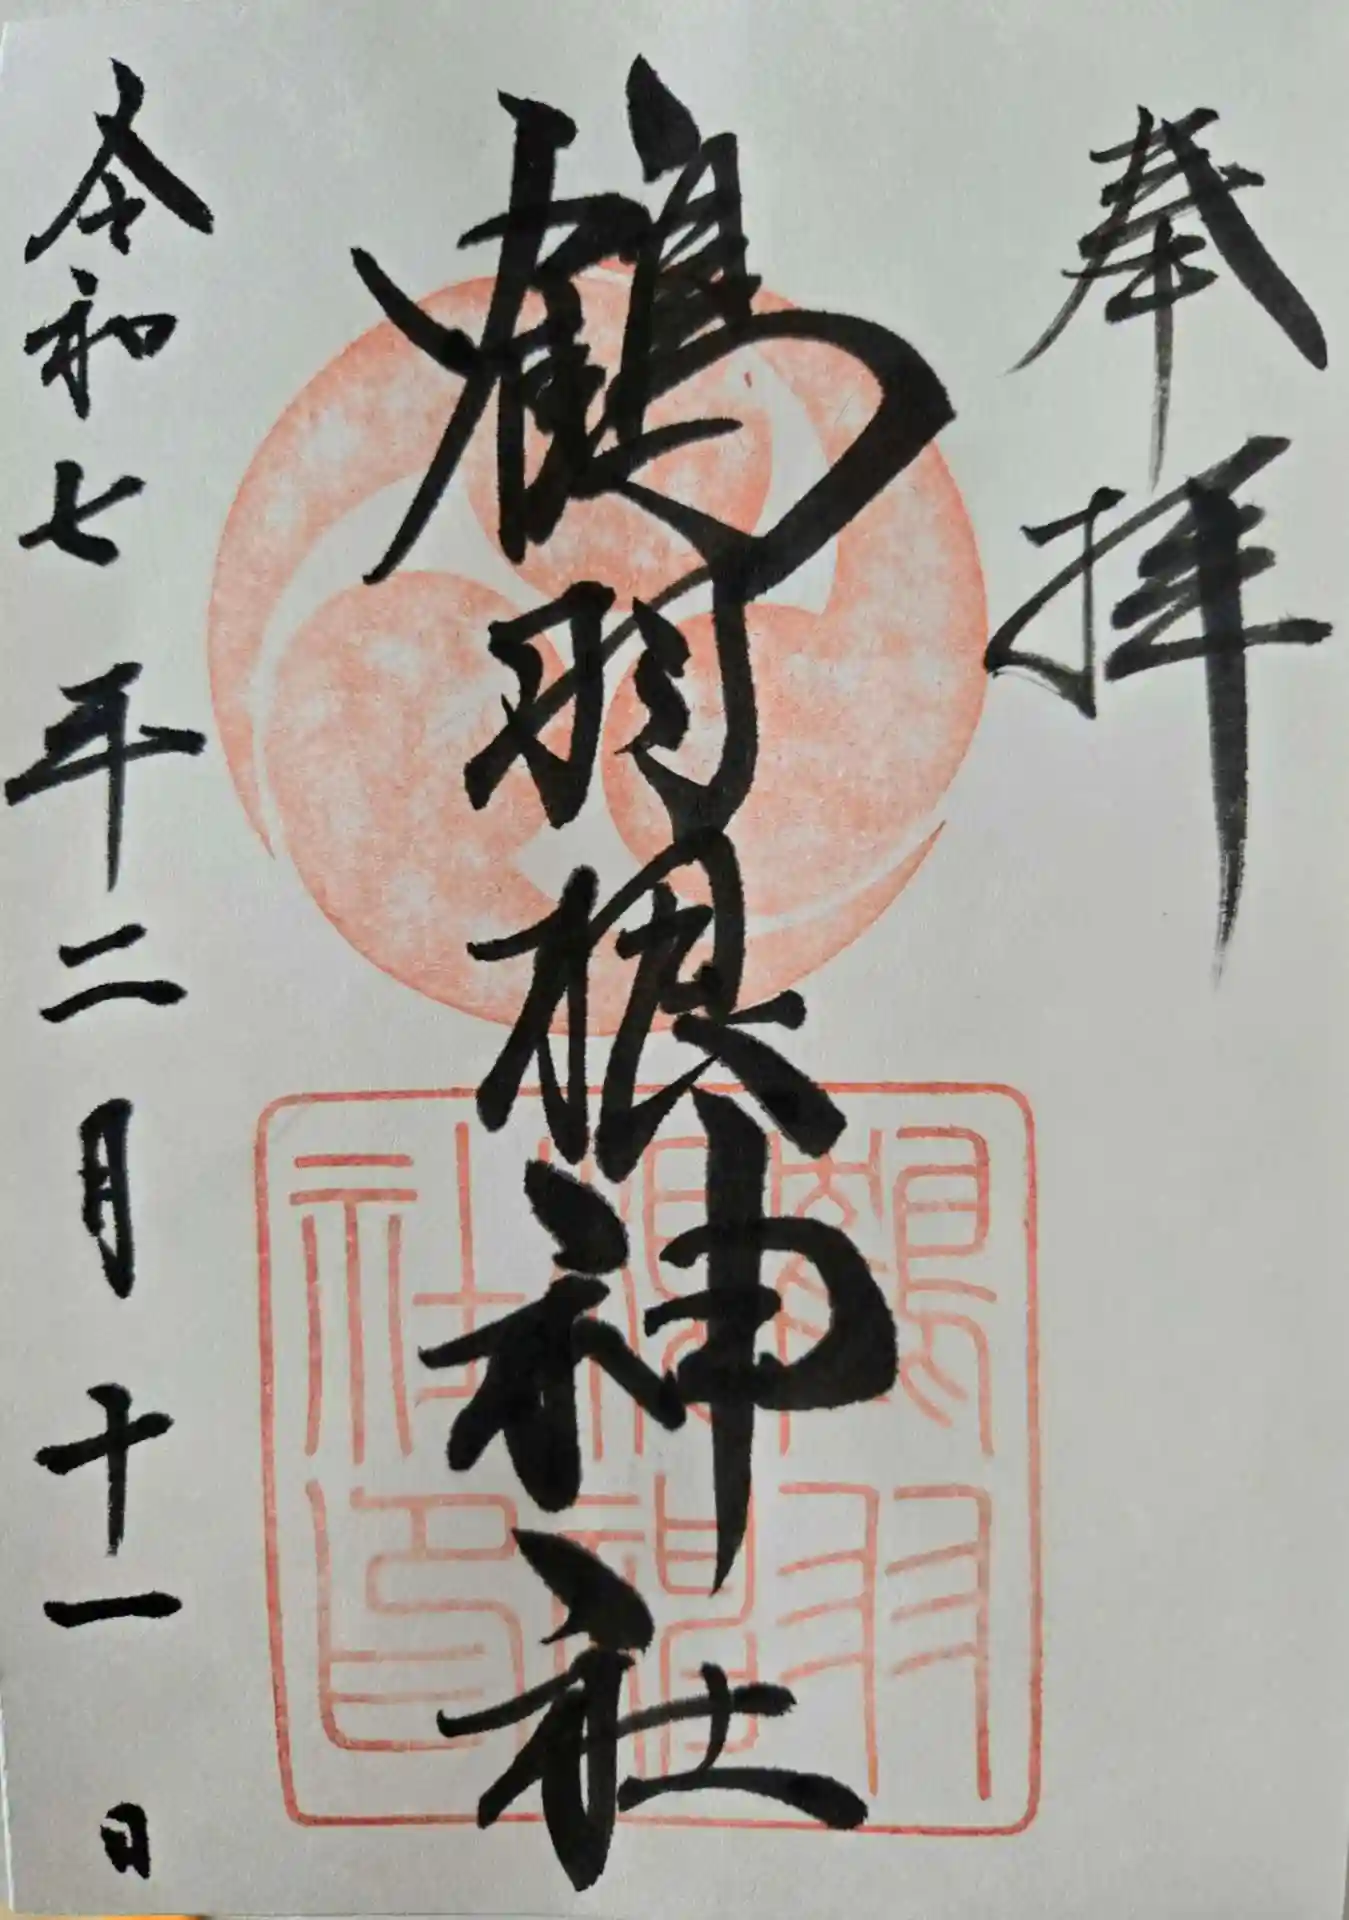 奉拝
鶴羽根神社
鶴羽根神社印
令和七年二月十一日